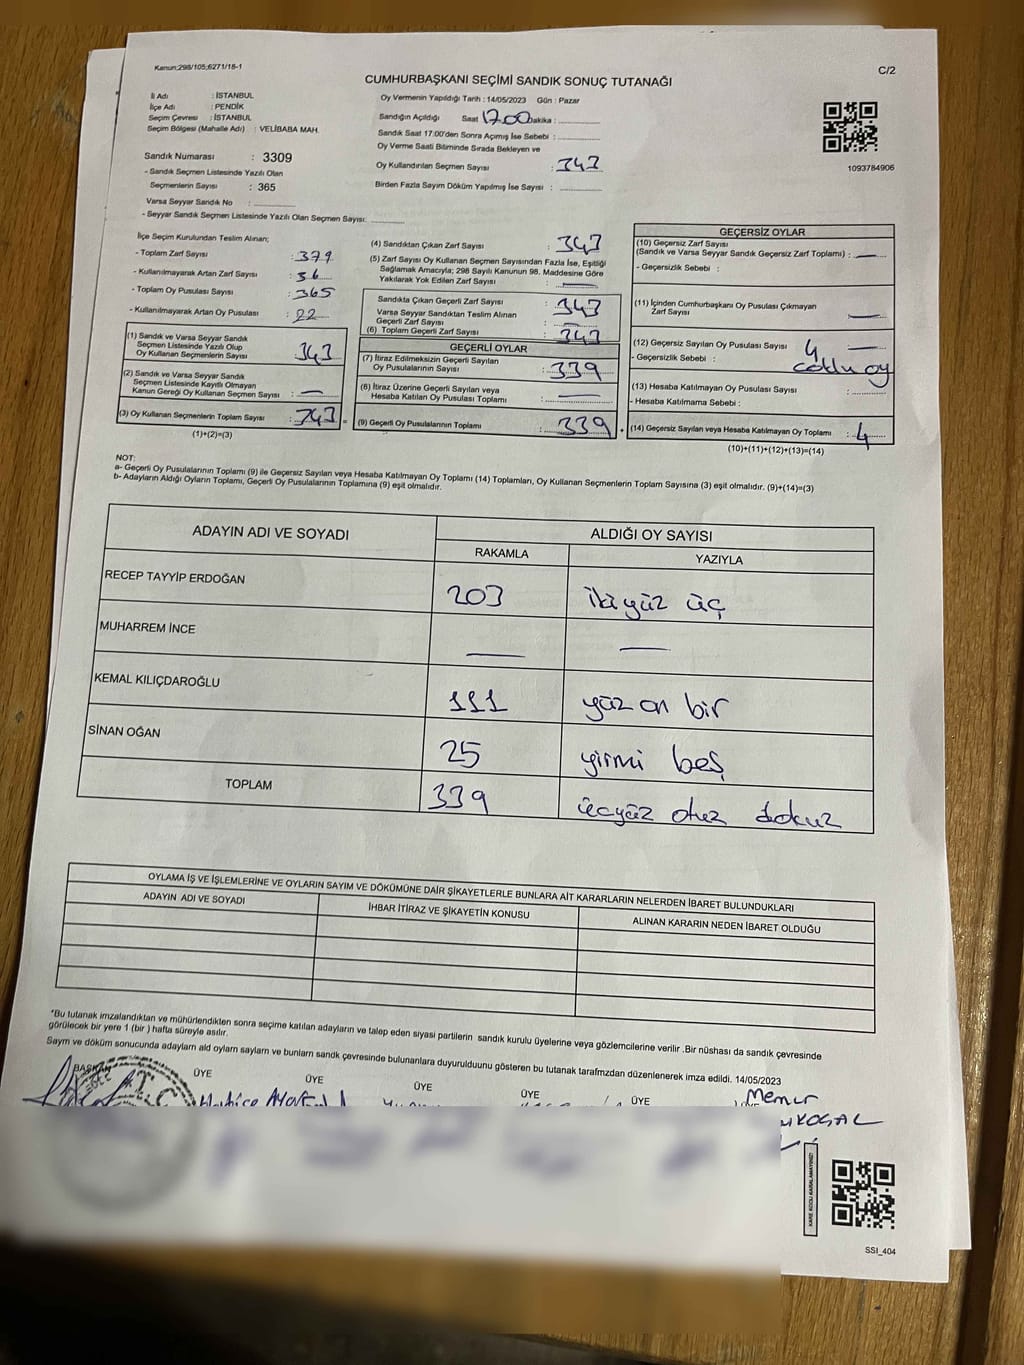 Kanun;298/105;6271/18-1
C/2
CUMHURBAŞKANI SEÇİMİ SANDIK SONUÇ TUTANAĞI
İl Adı : İSTANBUL
İlçe Adı : PENDİK
Seçim Çevresi : İSTANBUL
Seçim Bölgesi (Mahalle Adı) : VELİBABA MAH.
Sandık Numarası : 3309
- Sandık Seçmen Listesinde Yazılı Olan
Seçmenlerin Sayısı : 365
Varsa Seyyar Sandık No :
- Seyyar Sandık Seçmen Listesinde Yazılı Olan Seçmen Sayısı:
Oy Vermenin Yapıldığı Tarih : 14/05/2023 Gün : Pazar
Sandığın Açıldığı Saat 17.00 Dakika :
Sandık Saat 17:00'den Sonra Açımış İse Sebebi :
Oy Verme Saati Bitiminde Sırada Bekleyen ve
Oy Kullandırılan Seçmen Sayısı : 343
Birden Fazla Sayım Döküm Yapılmış İse Sayısı :
1093784906
İlçe Seçim Kurulundan Teslim Alınan;
- Toplam Zarf Sayısı : 379
- Kullanılmayarak Artan Zarf Sayısı : 36
- Toplam Oy Pusulası Sayısı : 365
- Kullanılmayarak Artan Oy Pusulası : 22
(1) Sandık ve Varsa Seyyar Sandık
Seçmen Listesinde Yazılı Olup
Oy Kullanan Seçmenlerin Sayısı : 343
(2) Sandık ve Varsa Seyyar Sandık
Seçmen Listesinde Kayıtlı Olmayan
Kanun Gereği Oy Kullanan Seçmen Sayısı : —
(3) Oy Kullanan Seçmenlerin Toplam Sayısı : 343
(1)+(2)=(3)
(4) Sandıktan Çıkan Zarf Sayısı : 343
(5) Zarf Sayısı Oy Kullanan Seçmen Sayısından Fazla İse, Eşitliği
Sağlamak Amacıyla; 298 Sayılı Kanunun 98. Maddesine Göre
Yakılarak Yok Edilen Zarf Sayısı : —
Sandıkta Çıkan Geçerli Zarf Sayısı : 343
Varsa Seyyar Sandıktan Teslim Alınan
Geçerli Zarf Sayısı : —
(6) Toplam Geçerli Zarf Sayısı : 343
GEÇERLİ OYLAR
(7) İtiraz Edilmeksizin Geçerli Sayılan
Oy Pusulalarının Sayısı : 339
(8) İtiraz Üzerine Geçerli Sayılan veya
Hesaba Katılan Oy Pusulası Toplamı : —
(9) Geçerli Oy Pusulalarının Toplamı : 339
GEÇERSİZ OYLAR
(10) Geçersiz Zarf Sayısı
(Sandık ve Varsa Seyyar Sandık Geçersiz Zarf Toplamı) : —
- Geçersizlik Sebebi :
(11) İçinden Cumhurbaşkanı Oy Pusulası Çıkmayan
Zarf Sayısı —
(12) Geçersiz Sayılan Oy Pusulası Sayısı : 4 —
- Geçersizlik Sebebi : çoklu oy
(13) Hesaba Katılmayan Oy Pusulası Sayısı :
- Hesaba Katılmama Sebebi :
(14) Geçersiz Sayılan veya Hesaba Katılmayan Oy Toplamı : 4
(10)+(11)+(12)+(13)=(14)
NOT:
a- Geçerli Oy Pusulalarının Toplamı (9) ile Geçersiz Sayılan veya Hesaba Katılmayan Oy Toplamı (14) Toplamları, Oy Kullanan Seçmenlerin Toplam Sayısına (3) eşit olmalıdır. (9)+(14)=(3)
b- Adayların Aldığı Oyların Toplamı, Geçerli Oy Pusulalarının Toplamına (9) eşit olmalıdır.
ADAYIN ADI VE SOYADI ALDIĞI OY SAYISI
RAKAMLA YAZIYLA
RECEP TAYYİP ERDOĞAN 203 iki yüz üç
MUHARREM İNCE — —
KEMAL KILIÇDAROĞLU 111 yüz on bir
SİNAN OĞAN 25 yirmi beş
TOPLAM 339 üçyüz otuz dokuz
OYLAMA İŞ VE İŞLEMLERİNE VE OYLARIN SAYIM VE DÖKÜMÜNE DAİR ŞİKAYETLERLE BUNLARA AİT KARARLARIN NELERDEN İBARET BULUNDUKLARI
ADAYIN ADI VE SOYADI İHBAR İTİRAZ VE ŞİKAYETİN KONUSU ALINAN KARARIN NEDEN İBARET OLDUĞU
*Bu tutanak imzalandıktan ve mühürlendikten sonra seçime katılan adayların ve talep eden siyasi partilerin sandık kurulu üyelerine veya gözlemcilerine verilir .Bir nüshası da sandık çevresinde
görülecek bir yere 1 (bir ) hafta süreyle asılır.
Saym ve döküm sonucunda adaylarn ald oylarn saylarn ve bunlarn sandk çevresinde bulunanlara duyurulduunu gösteren bu tutanak tarafmzdan düzenlenerek imza edildi. 14/05/2023
BAŞKAN ÜYE ÜYE ÜYE ÜYE ÜYE ÜYE
T.C.
Memur
KARE KODU KARALAMAYINIZ!
SSI_404